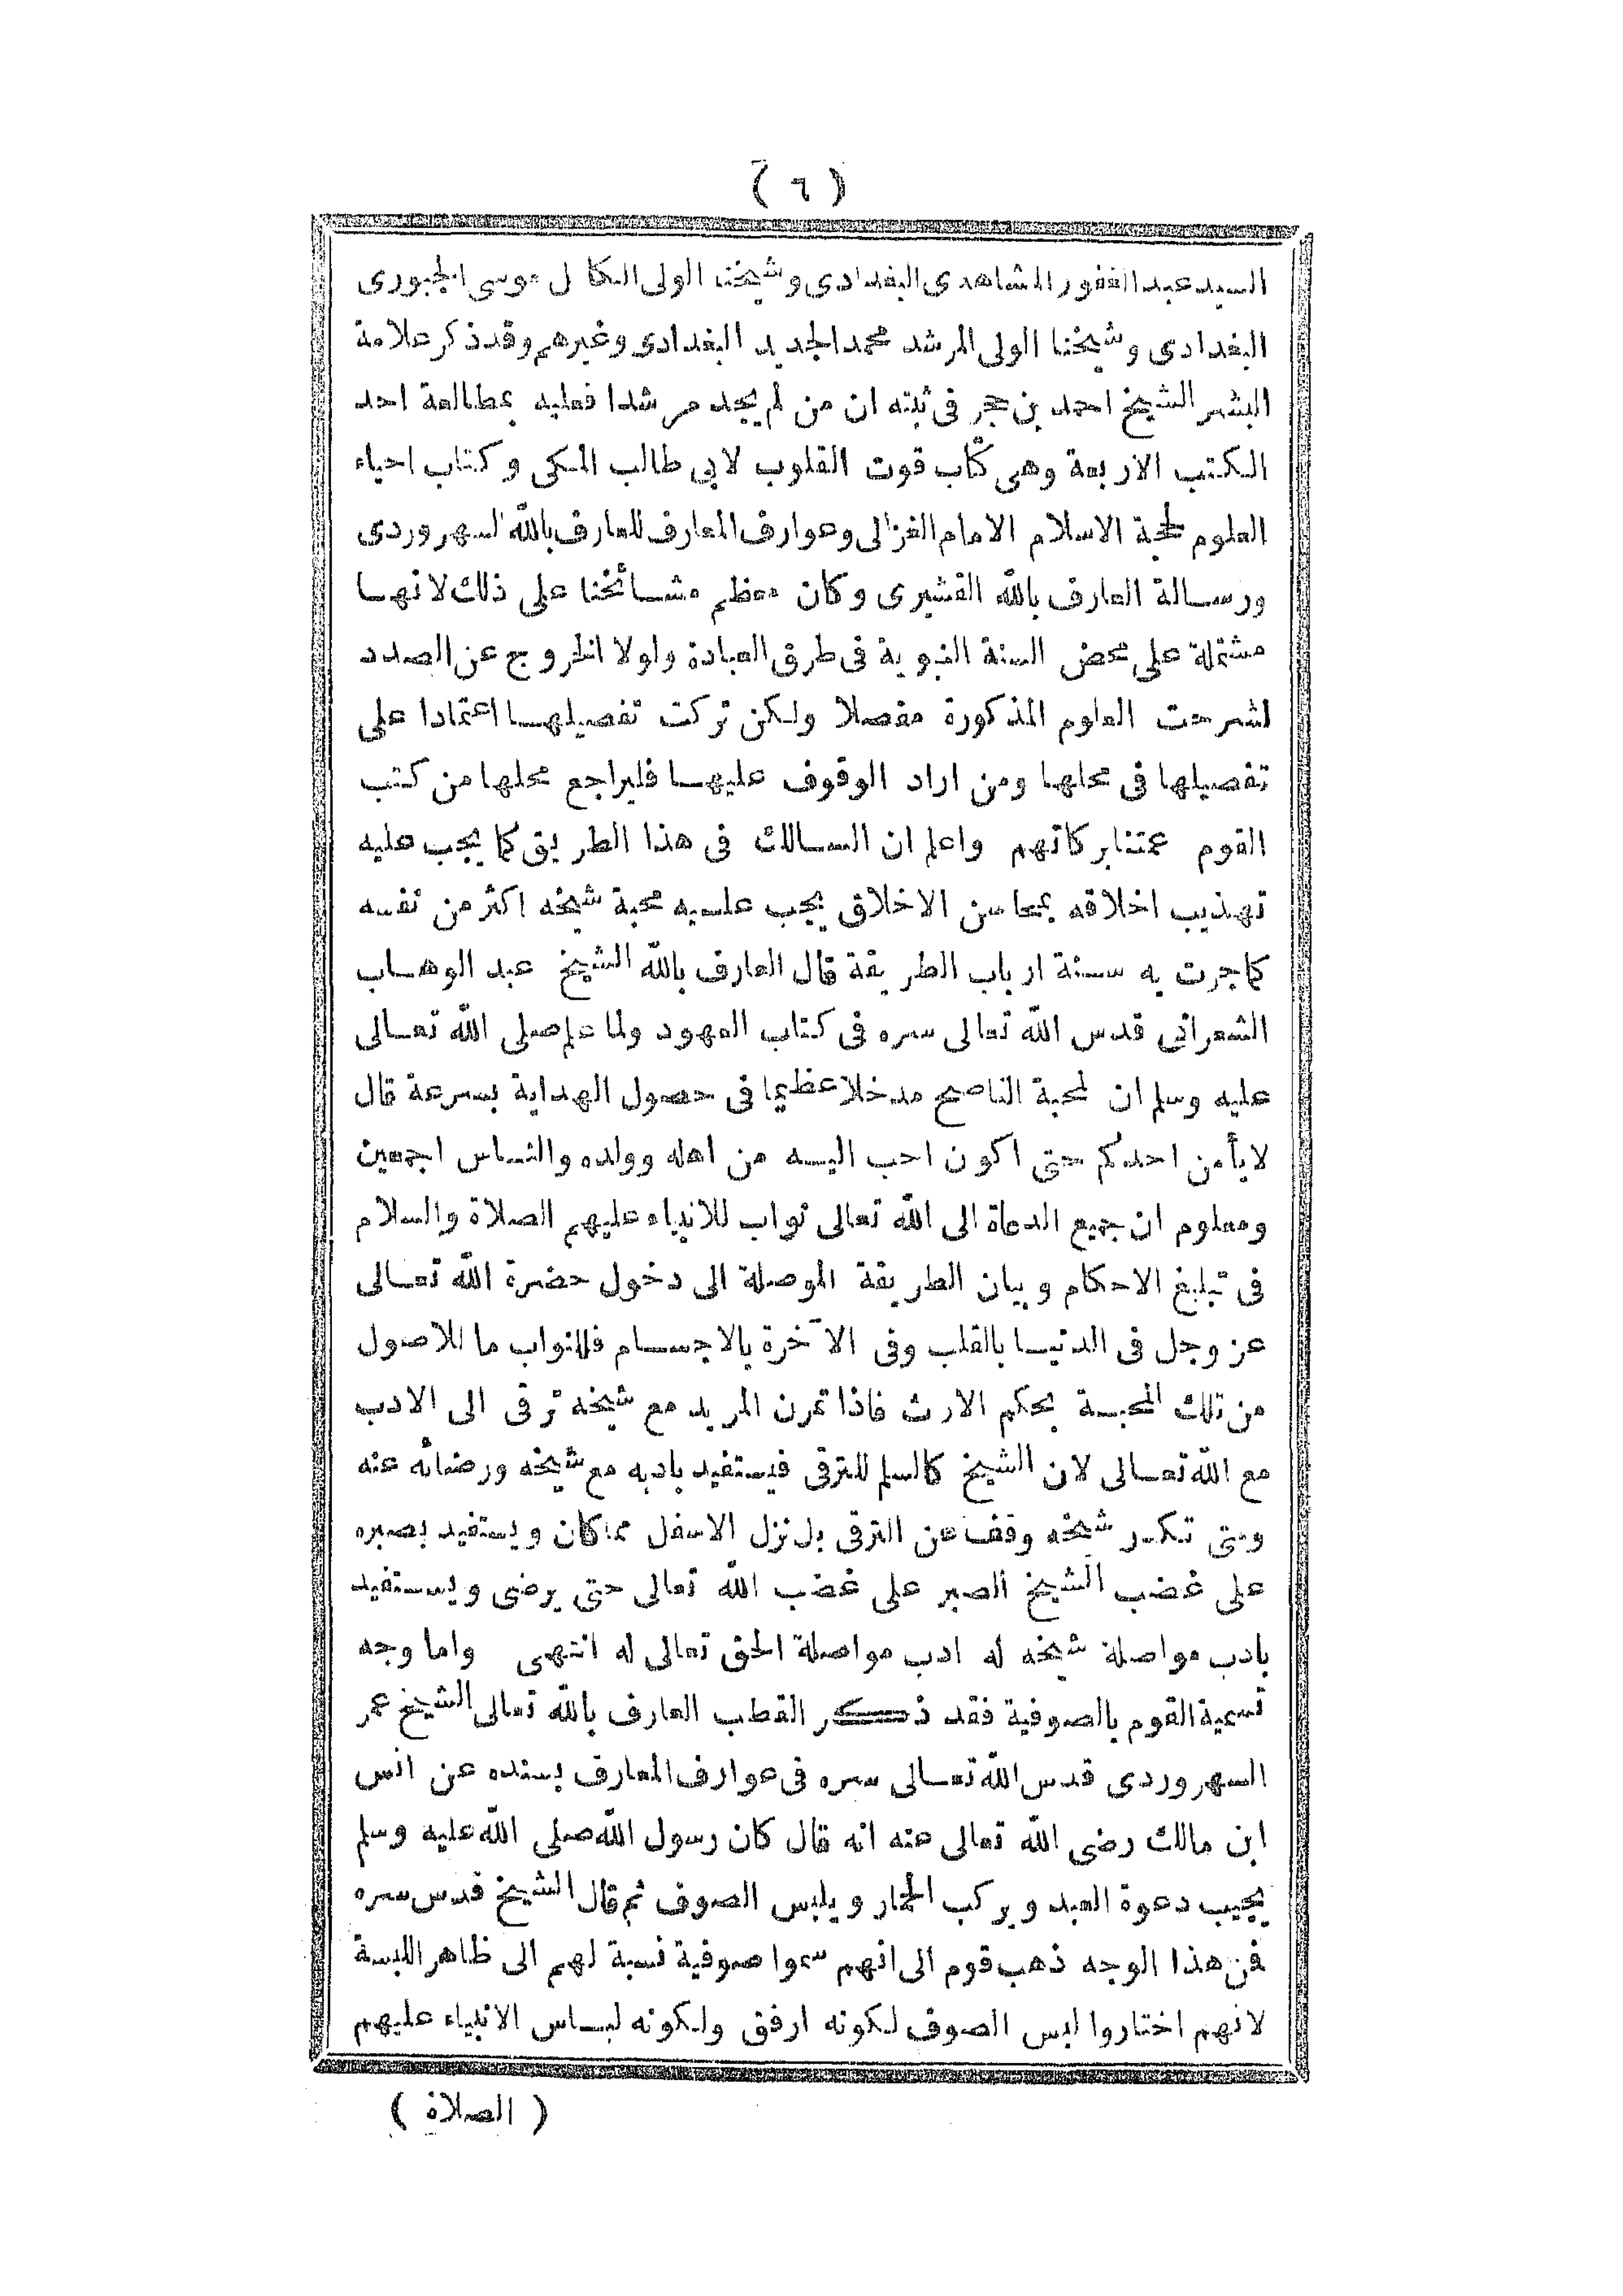 ( ٦ )
السيد عبد الغفور المشاهدى البغدادى وشيخنا الولى الكامل موسى الجبورى
البغدادى وشيخنا الولى المرشد محمد الجديد البغدادى وغيرهم وقد ذكر علامة
البشر الشيخ احمد بن حجر فى ثبته ان من لم يجد مرشدا فعليه بمطالعة احد
الكتب الاربعة وهى كتاب قوت القلوب لابى طالب المكى وكتاب احياء
العلوم لحجة الاسلام الامام الغزالى وعوارف المعارف للعارف بالله السهروردى
ورسالة العارف بالله القشيرى وكان معظم مشائخنا على ذلك لانها
مشتملة على محض السنة النبوية فى طرق العبادة ولولا الخروج عن الصدد
لشرحت العلوم المذكورة مفصلا ولكن تركت تفصيلها اعتمادا على
تفصيلها فى محلها ومن اراد الوقوف عليها فليراجع محلها من كتب
القوم عمتنا بركاتهم واعلم ان السالك فى هذا الطريق كما يجب عليه
تهذيب اخلاقه بمحاسن الاخلاق يجب عليه محبة شيخه اكثر من نفسه
كما جرت به سنة ارباب الطريقة قال العارف بالله الشيخ عبد الوهاب
الشعرانى قدس الله تعالى سره فى كتاب العهود ولما علم صلى الله تعالى
عليه وسلم ان لمحبة الناصح مدخلا عظيما فى حصول الهداية بسرعة قال
لا يأمن احدكم حتى اكون احب اليه من اهله وولده والناس اجمعين
ومعلوم ان جميع الدعاة الى الله تعالى نواب للانبياء عليهم الصلاة والسلام
فى تبليغ الاحكام وبيان الطريقة الموصلة الى دخول حضرة الله تعالى
عز وجل فى الدنيا بالقلب وفى الآخرة بالاجسام فللنواب ما للاصول
من تلك المحبة بحكم الارث فاذا تمرن المريد مع شيخه ترقى الى الادب
مع الله تعالى لان الشيخ كالسلم للترقى فيستفيد بادبه مع شيخه ورضائه عنه
ومتى تكدر شيخه وقف عن الترقى بل نزل الاسفل مما كان ويستفيد بصبره
على غضب الشيخ الصبر على غضب الله تعالى حتى يرضى ويستفيد
بادب مواصلة شيخه له ادب مواصلة الحق تعالى له انتهى واما وجه
تسمية القوم بالصوفية فقد ذكر القطب العارف بالله تعالى الشيخ عمر
السهروردى قدس الله تعالى سره فى عوارف المعارف بسنده عن انس
ابن مالك رضى الله تعالى عنه انه قال كان رسول الله صلى الله عليه وسلم
يجيب دعوة العبد ويركب الحمار ويلبس الصوف ثم قال الشيخ قدس سره
فمن هذا الوجه ذهب قوم الى انهم سموا صوفية نسبة لهم الى ظاهر اللبسة
لانهم اختاروا لبس الصوف لكونه ارفق ولكونه لباس الانبياء عليهم
( الصلاة )